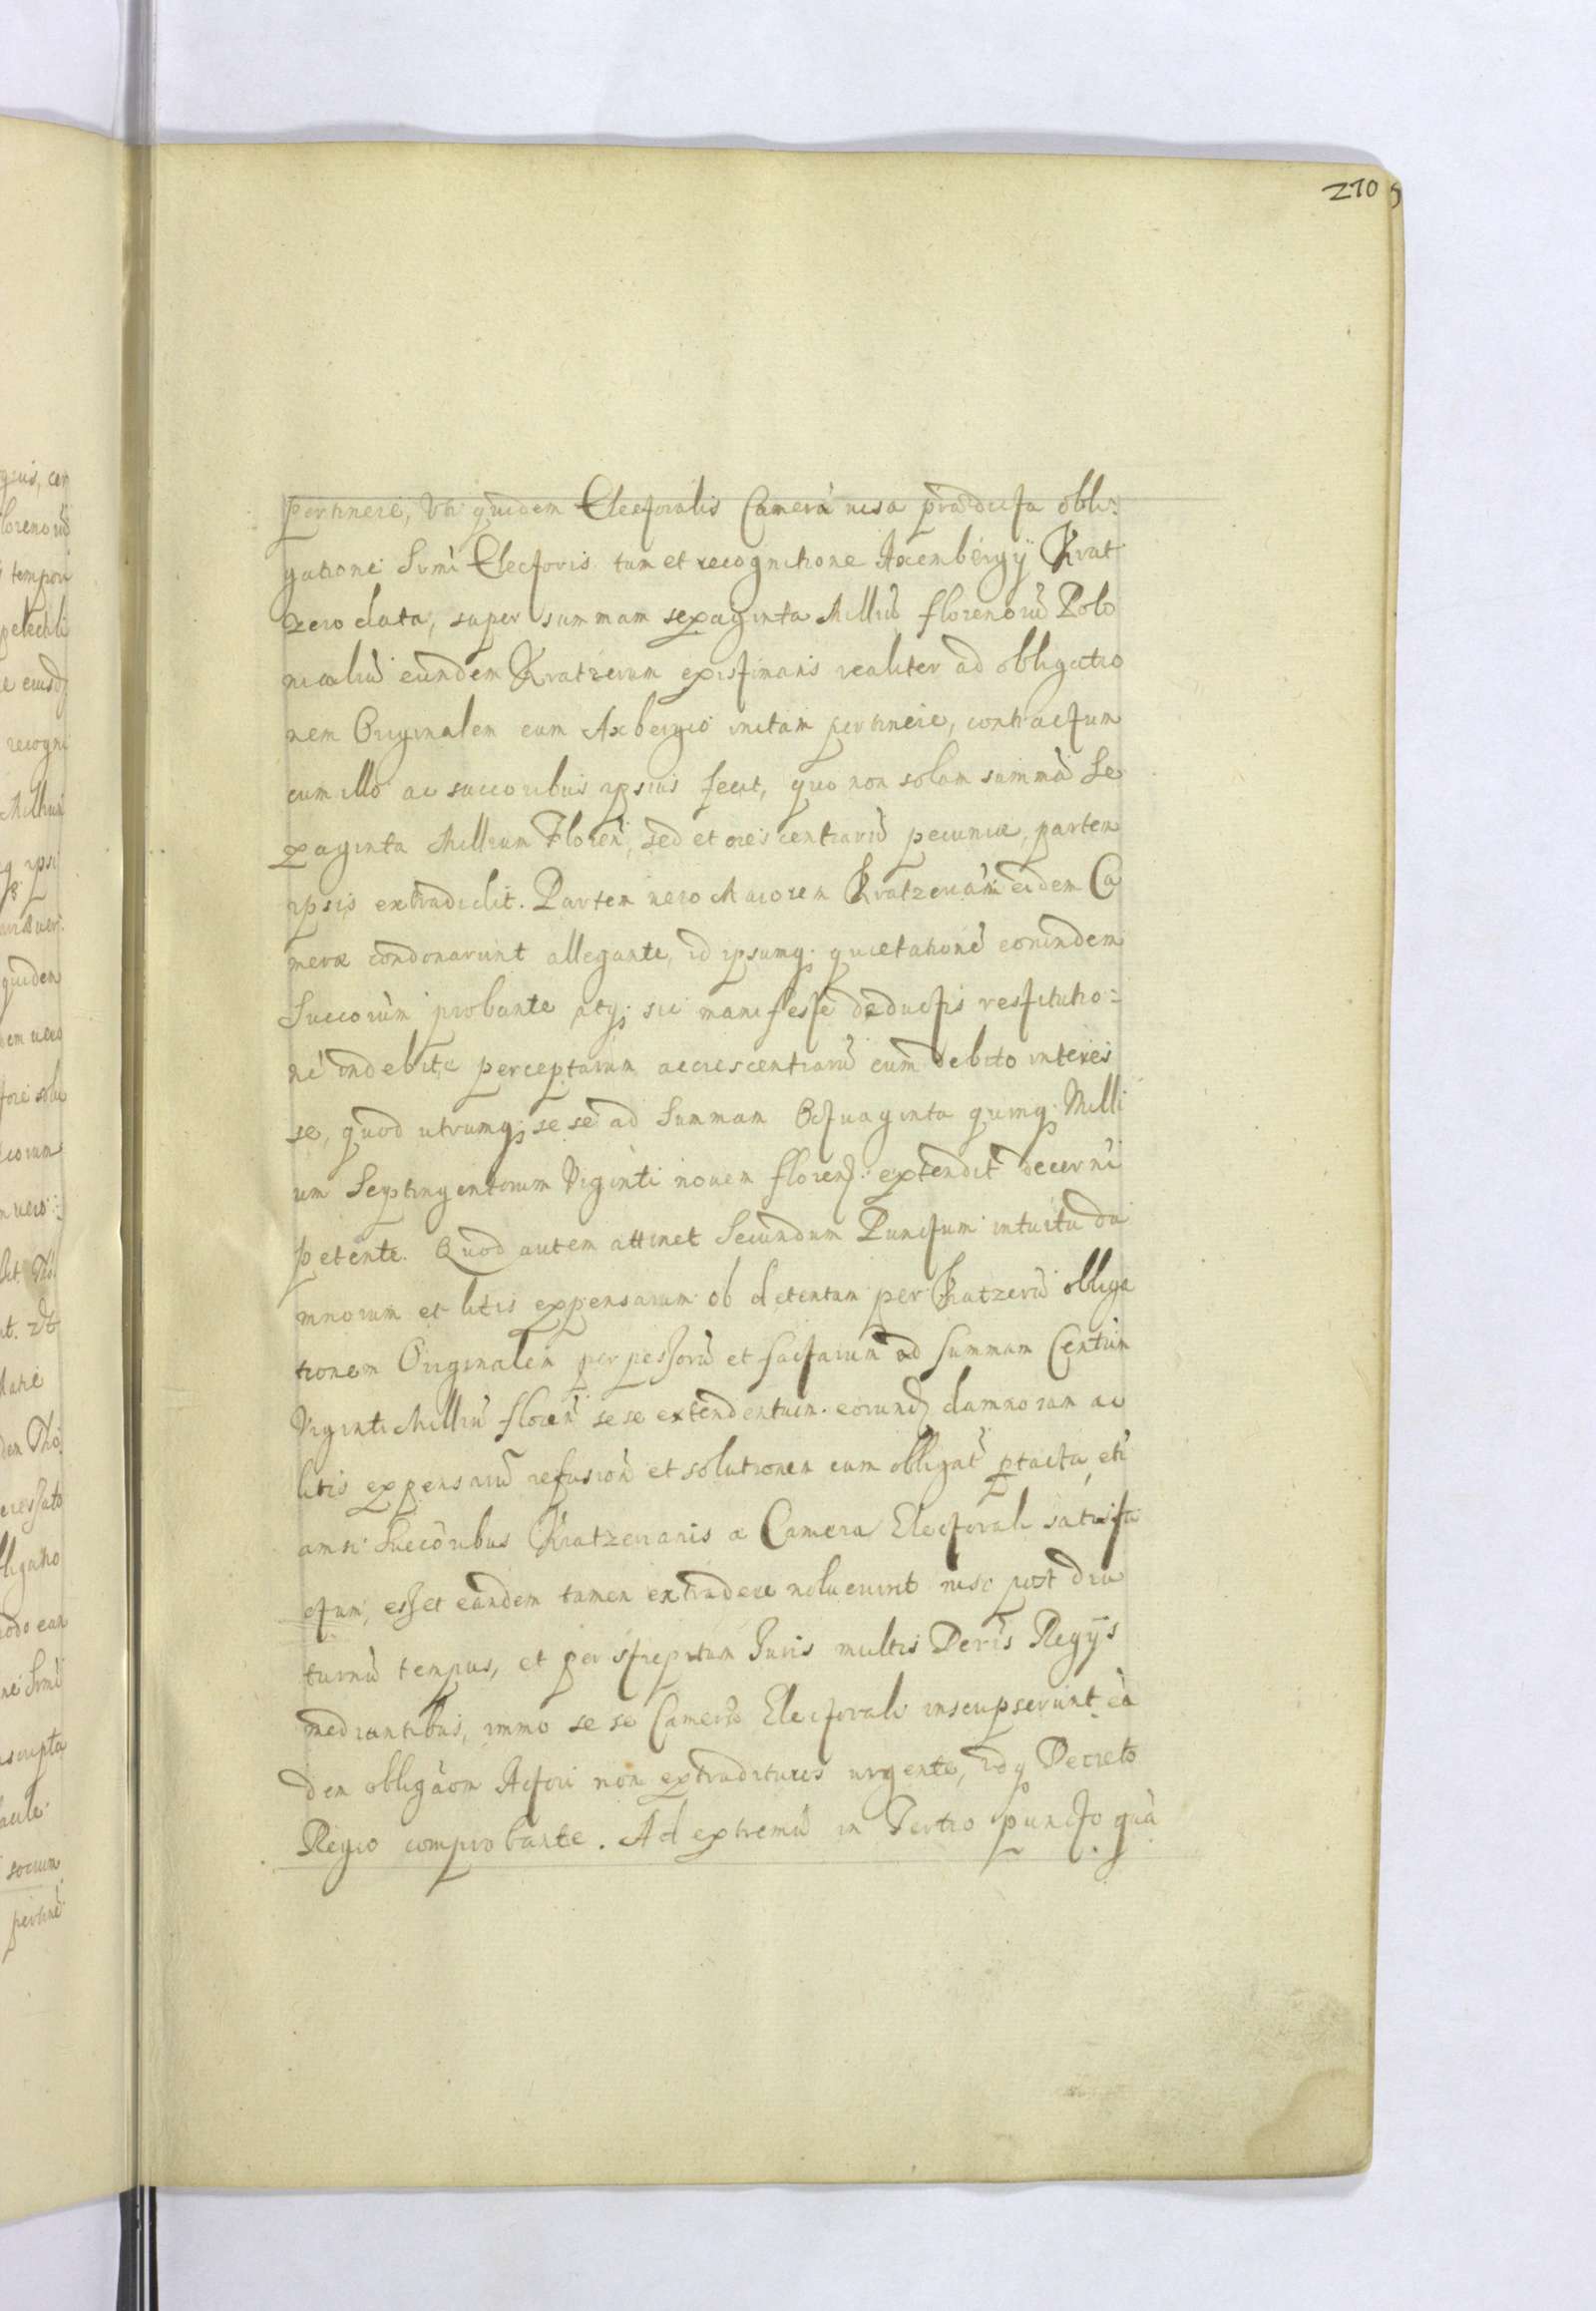 270
pertinere, Uti quidem Electoralis Camerà visa praedicta obli:
gatione Sermi Electoris tum et recognitione Axembergÿ Krat
zero data, super summam sexaginta Milliũ florenorũ Polo
nicaliũ eundem Kratzerum existimans realiter ad obligatio
nem Originalem cum Axbergio initam pertinere, contractum
cum illo ac succoribus ipsius fecit, quo non solam summã Se
xaginta Millium Floren, sed et accrescentiarũ pecuniae, partem
ipsis extradidit. Partem vero Maiorem Kratzerianã eidem Ca
merae condonarunt allegante, id ipsumq; quietatione eorundem
Succorum probante atq; sic manifeste deductis restitutio:
ne indebite perceptarum accrescentiarũ cum debito interes
se, quod utrumq; se se ad Summam Octuaginta quinq; Milli
um Septingentorum Viginti novem floren: extendit decerni
petente. Quod autem attinet Secundum Punctum intuitu da
mnorum et litis expensarum ob detentam per Kratzerũ obliga
tionem Originalem perpessorũ et factarum ad summam Centum
Viginti Milliũ floren se se extendentium. eorund damnorum ac
litis expensarũ refusionẽ et solutionem cum obligat ptacta, eti
amsi Succoribus Kratzerianis a Camera Electorali satisfa
ctum, esset eandem tamen extradere noluerint nisi post diu
turnũ tempus, et per strepitum Iuris multis Decris Regÿs
mediantibus, immo se se Camerae Electorali inscripserunt eà
dem obligaom Actori non extradituros urgente, idq Decreto
Regio comprobante. Ad extremũ in Tertio puncto quà